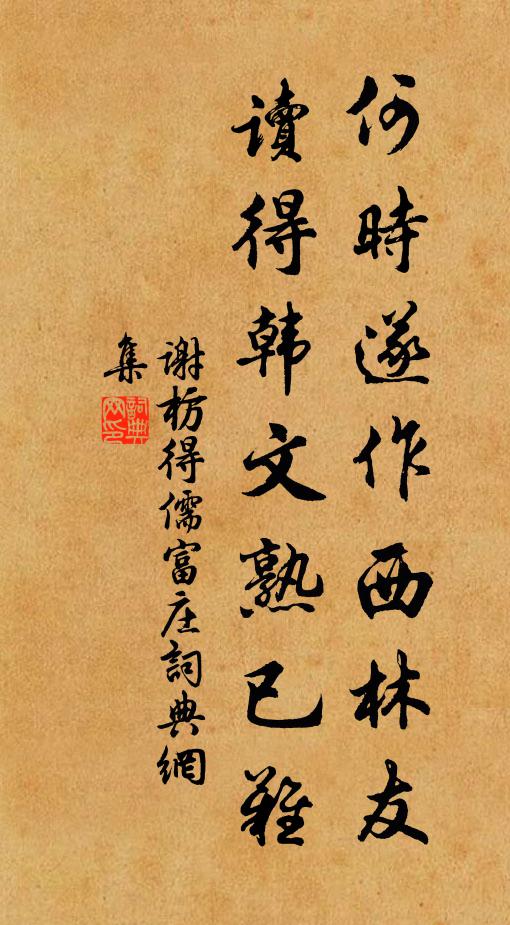 何時遂作西林友
讀得韩文熟已難
谢枋得儒富庄詞典網
集
詞典網印